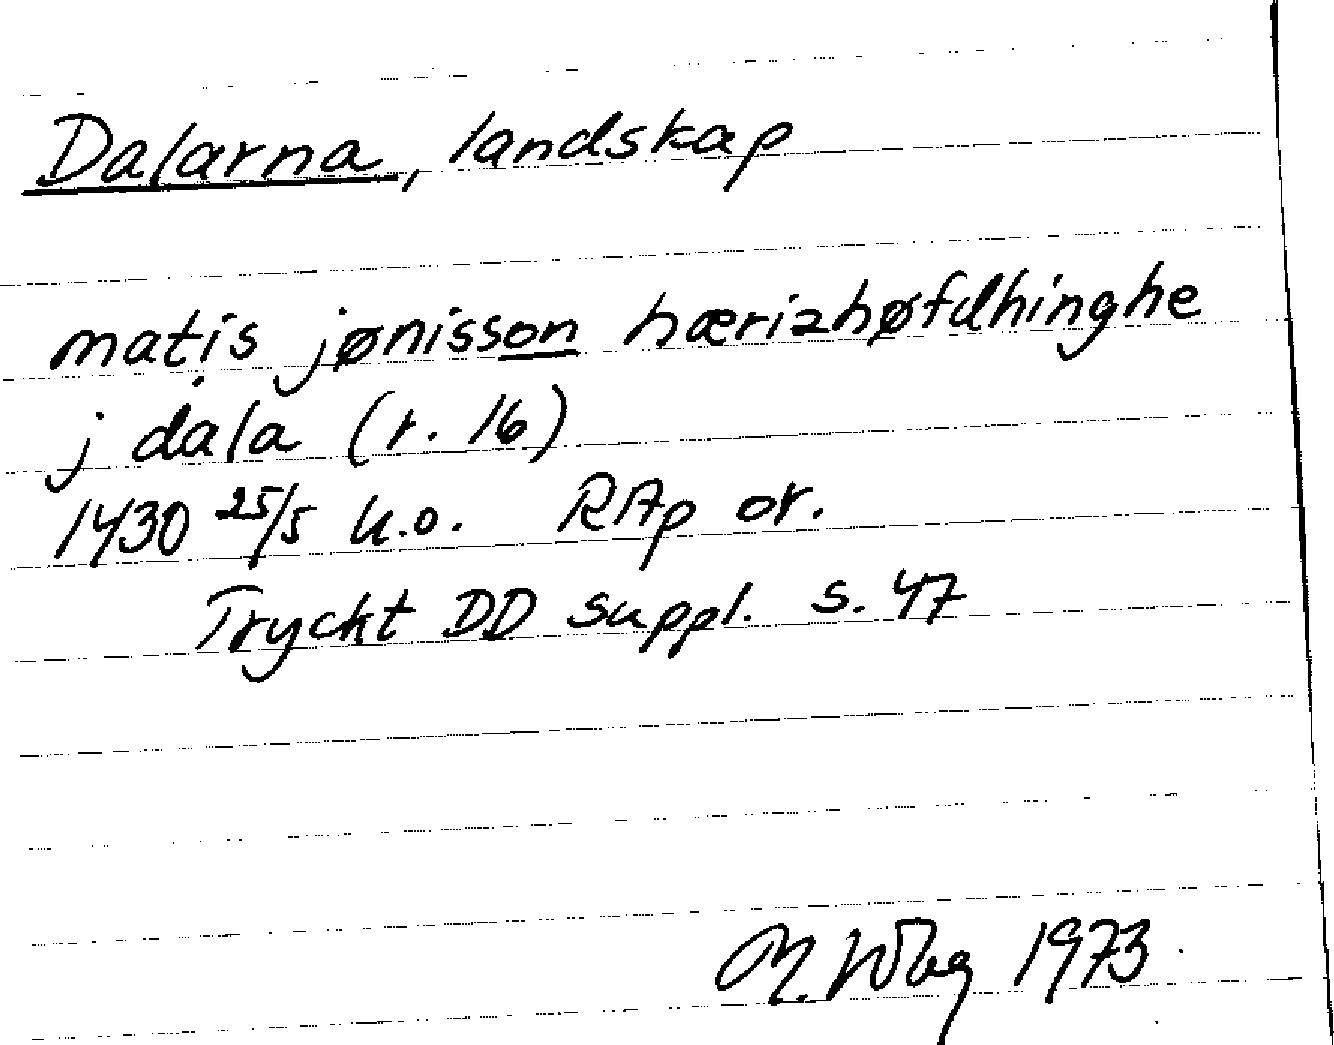 Dalarna, landskap
matis jønisson hærizhøfdhinghe
j dala (r. 16)
1430 25/5 u.o. RAp or.
Tryckt DD suppl. s. 47
M. 1973